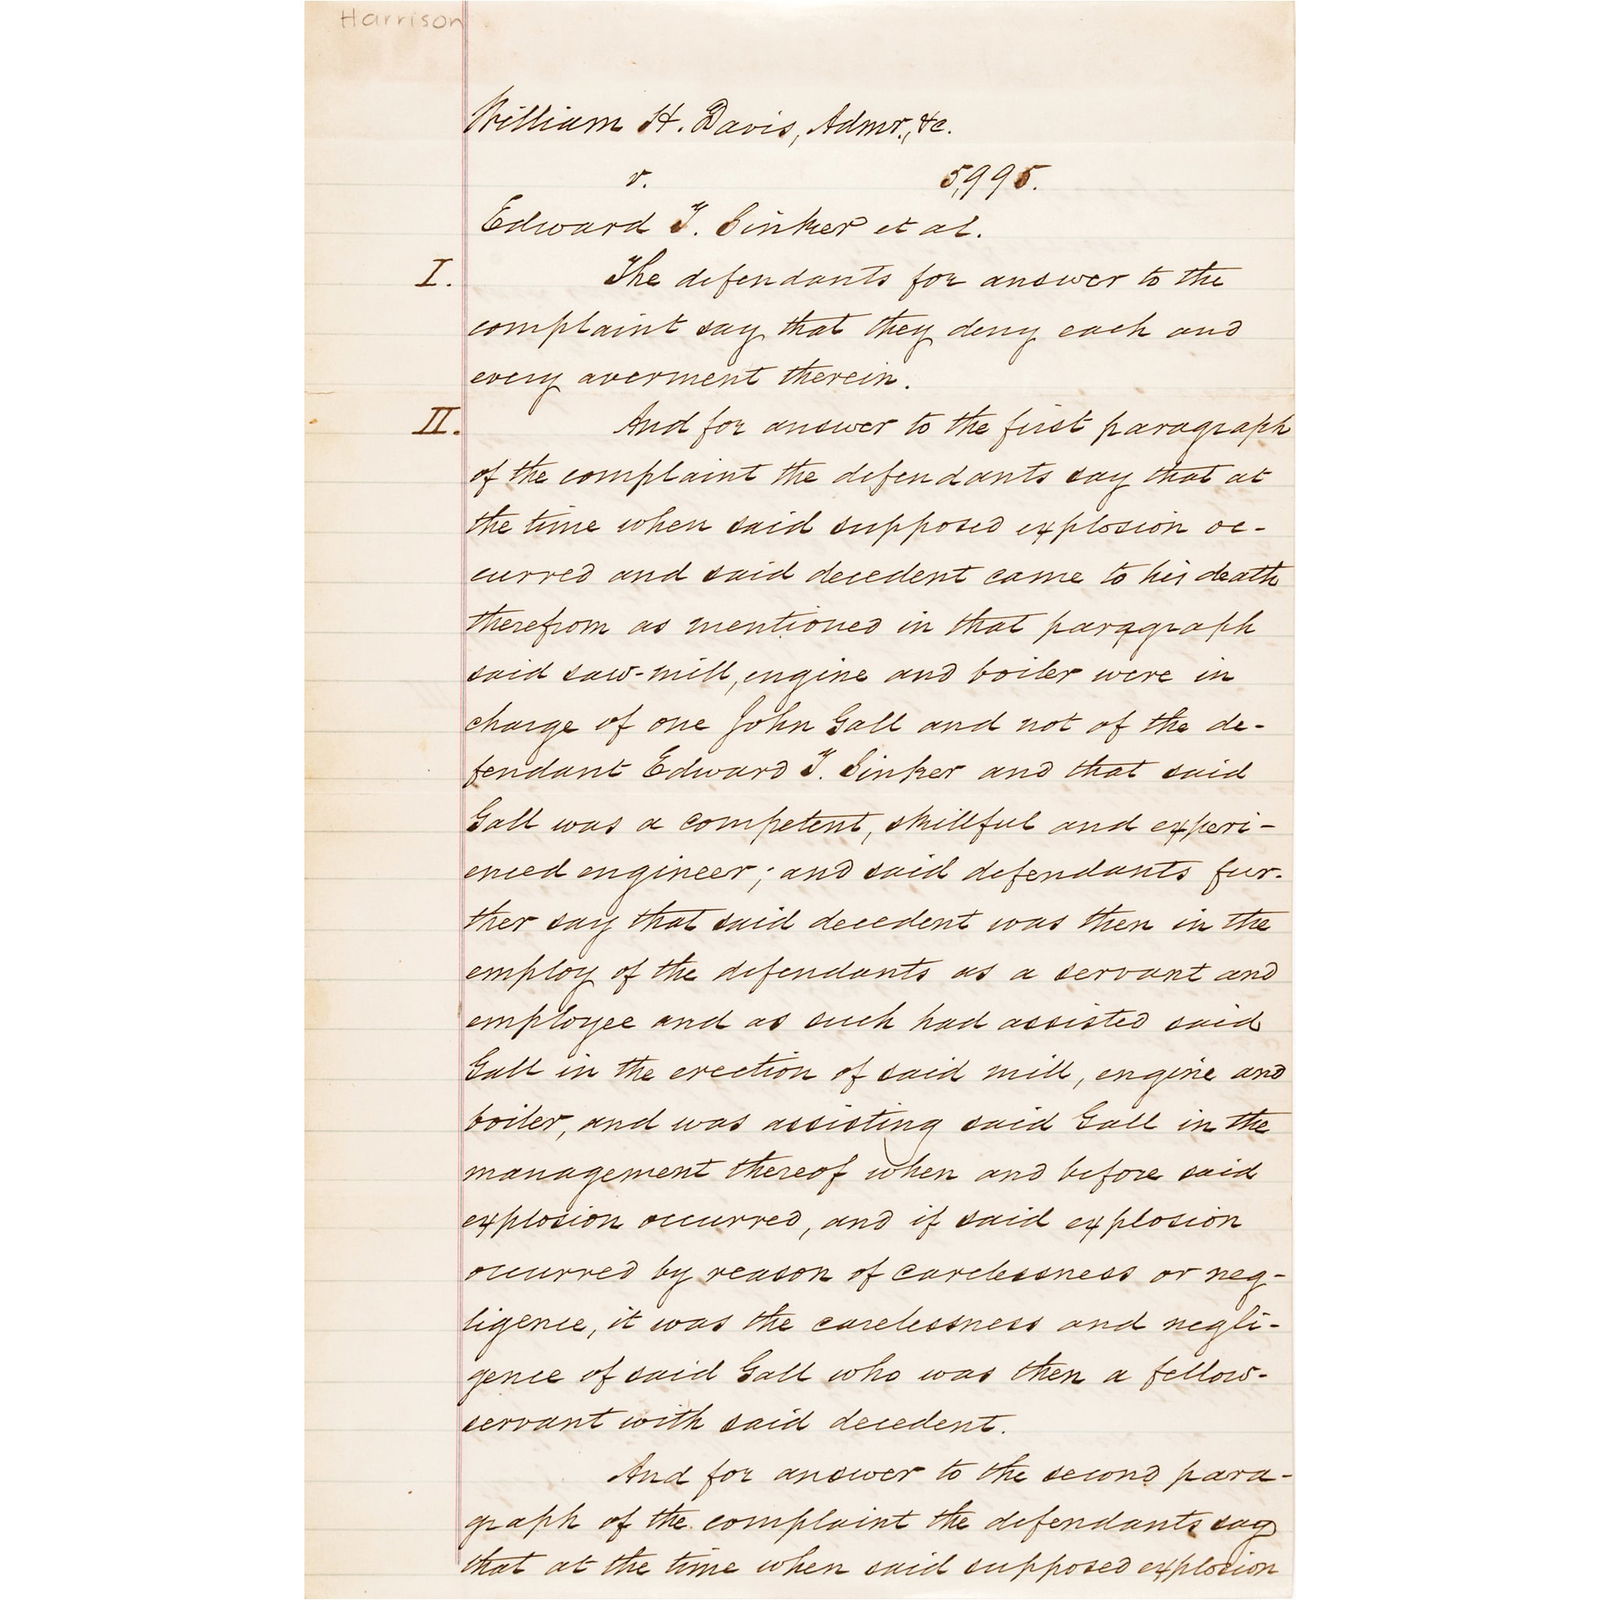 Harrison
William H. Davis, Admr., &c.
v. 5,995.
Edward T. Sinker et al.
I. The defendants for answer to the
complaint say that they deny each and
every averment therein.
II. And for answer to the first paragraph
of the complaint the defendants say that at
the time when said supposed explosion oc-
curred and said decedent came to his death
therefrom as mentioned in that paragraph
said saw-mill, engine and boiler were in
charge of one John Gall and not of the de-
fendant Edward T. Sinker and that said
Gall was a competent, skillful and experi-
enced engineer; and said defendants fur-
ther say that said decedent was then in the
employ of the defendants as a servant and
employee and as such had assisted said
Gall in the erection of said mill, engine and
boiler, and was assisting said Gall in the
management thereof when and before said
explosion occurred, and if said explosion
occurred by reason of carelessness or neg-
ligence, it was the carelessness and negli-
gence of said Gall who was then a fellow-
servant with said decedent.
And for answer to the second para-
graph of the complaint the defendants say
that at the time when said supposed explosion